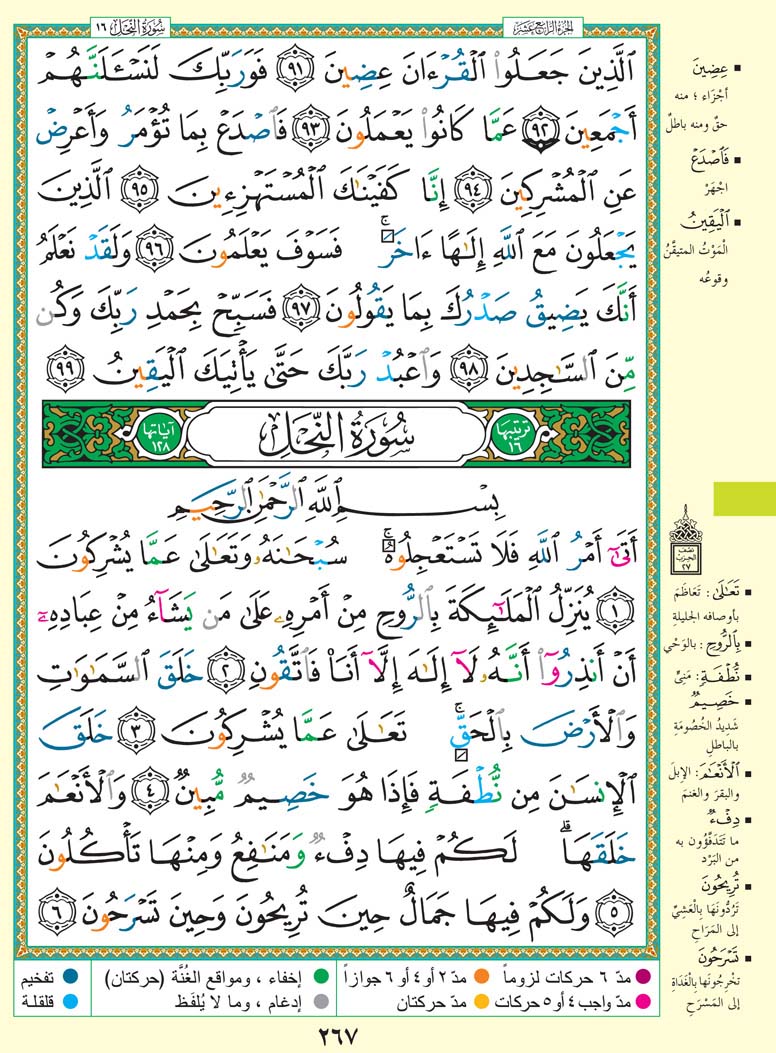 سُورَةُ النَّحْلِ ١٦
الجُزءُ الرَّابِعُ عَشَرَ
الَّذِينَ جَعَلُوا۟ الْقُرْءَانَ عِضِينَ ٩١ فَوَرَبِّكَ لَنَسْـَٔلَنَّهُمْ
أَجْمَعِينَ ٩٢ عَمَّا كَانُوا۟ يَعْمَلُونَ ٩٣ فَاصْدَعْ بِمَا تُؤْمَرُ وَأَعْرِضْ
عَنِ الْمُشْرِكِينَ ٩٤ إِنَّا كَفَيْنَٰكَ الْمُسْتَهْزِءِينَ ٩٥ الَّذِينَ
يَجْعَلُونَ مَعَ اللَّهِ إِلَٰهًا ءَاخَرَ ۚ فَسَوْفَ يَعْلَمُونَ ٩٦ وَلَقَدْ نَعْلَمُ
أَنَّكَ يَضِيقُ صَدْرُكَ بِمَا يَقُولُونَ ٩٧ فَسَبِّحْ بِحَمْدِ رَبِّكَ وَكُن
مِّنَ السَّٰجِدِينَ ٩٨ وَاعْبُدْ رَبَّكَ حَتَّىٰ يَأْتِيَكَ الْيَقِينُ ٩٩
ترتيبها ١٦
سُورَةُ النَّحْلِ
آياتها ١٢٨
بِسْمِ اللَّهِ الرَّحْمَٰنِ الرَّحِيمِ
أَتَىٰٓ أَمْرُ اللَّهِ فَلَا تَسْتَعْجِلُوهُ ۚ سُبْحَٰنَهُۥ وَتَعَٰلَىٰ عَمَّا يُشْرِكُونَ
١ يُنَزِّلُ الْمَلَٰٓئِكَةَ بِالرُّوحِ مِنْ أَمْرِهِۦ عَلَىٰ مَن يَشَآءُ مِنْ عِبَادِهِۦٓ
أَنْ أَنذِرُوٓا۟ أَنَّهُۥ لَآ إِلَٰهَ إِلَّآ أَنَا۠ فَاتَّقُونِ ٢ خَلَقَ السَّمَٰوَٰتِ
وَالْأَرْضَ بِالْحَقِّ ۚ تَعَٰلَىٰ عَمَّا يُشْرِكُونَ ٣ خَلَقَ
الْإِنسَٰنَ مِن نُّطْفَةٍ فَإِذَا هُوَ خَصِيمٌ مُّبِينٌ ٤ وَالْأَنْعَٰمَ
خَلَقَهَا ۗ لَكُمْ فِيهَا دِفْءٌ وَمَنَٰفِعُ وَمِنْهَا تَأْكُلُونَ
٥ وَلَكُمْ فِيهَا جَمَالٌ حِينَ تُرِيحُونَ وَحِينَ تَسْرَحُونَ ٦
▪ عِضِينَ
أجْزاء ؛ منه
حقٌ ومنه باطلٌ
▪ فَاصْدَعْ
اجْهَرْ
▪ الْيَقِينُ
الْمَوْتُ المتيقَّنُ
وقوعُه
نصف
الحزب
٢٧
▪ تَعَٰلَىٰ: تَعَاظَمَ
بأوصافه الجليلةِ
▪ بِالرُّوحِ: بالوَحْيِ
▪ نُّطْفَةٍ: مَنِيٍّ
▪ خَصِيمٌ
شَدِيدُ الخُصُومَةِ
بالبَاطِلِ
▪ الْأَنْعَٰمَ: الإبلَ
والبقرَ والغنمَ
▪ دِفْءٌ
ما تَتَدَفَّؤُون به
من البَرْد
▪ تُرِيحُونَ
تَرُدُّونَهَا بِالْعَشِيِّ
إلى المَرَاحِ
▪ تَسْرَحُونَ
تخْرِجُونَها بِالْغَدَاةِ
إلى المَسْرَحِ
مدّ ٦ حركات لزوماً
مدّ ٢ أو ٤ أو ٦ جوازاً
إخفاء ، ومواقع الغُنَّة (حركتان)
تفخيم
مدّ واجب ٤ أو ٥ حركات
مدّ حركتان
إدغام ، وما لا يُلفَظ
قلقلة
٢٦٧